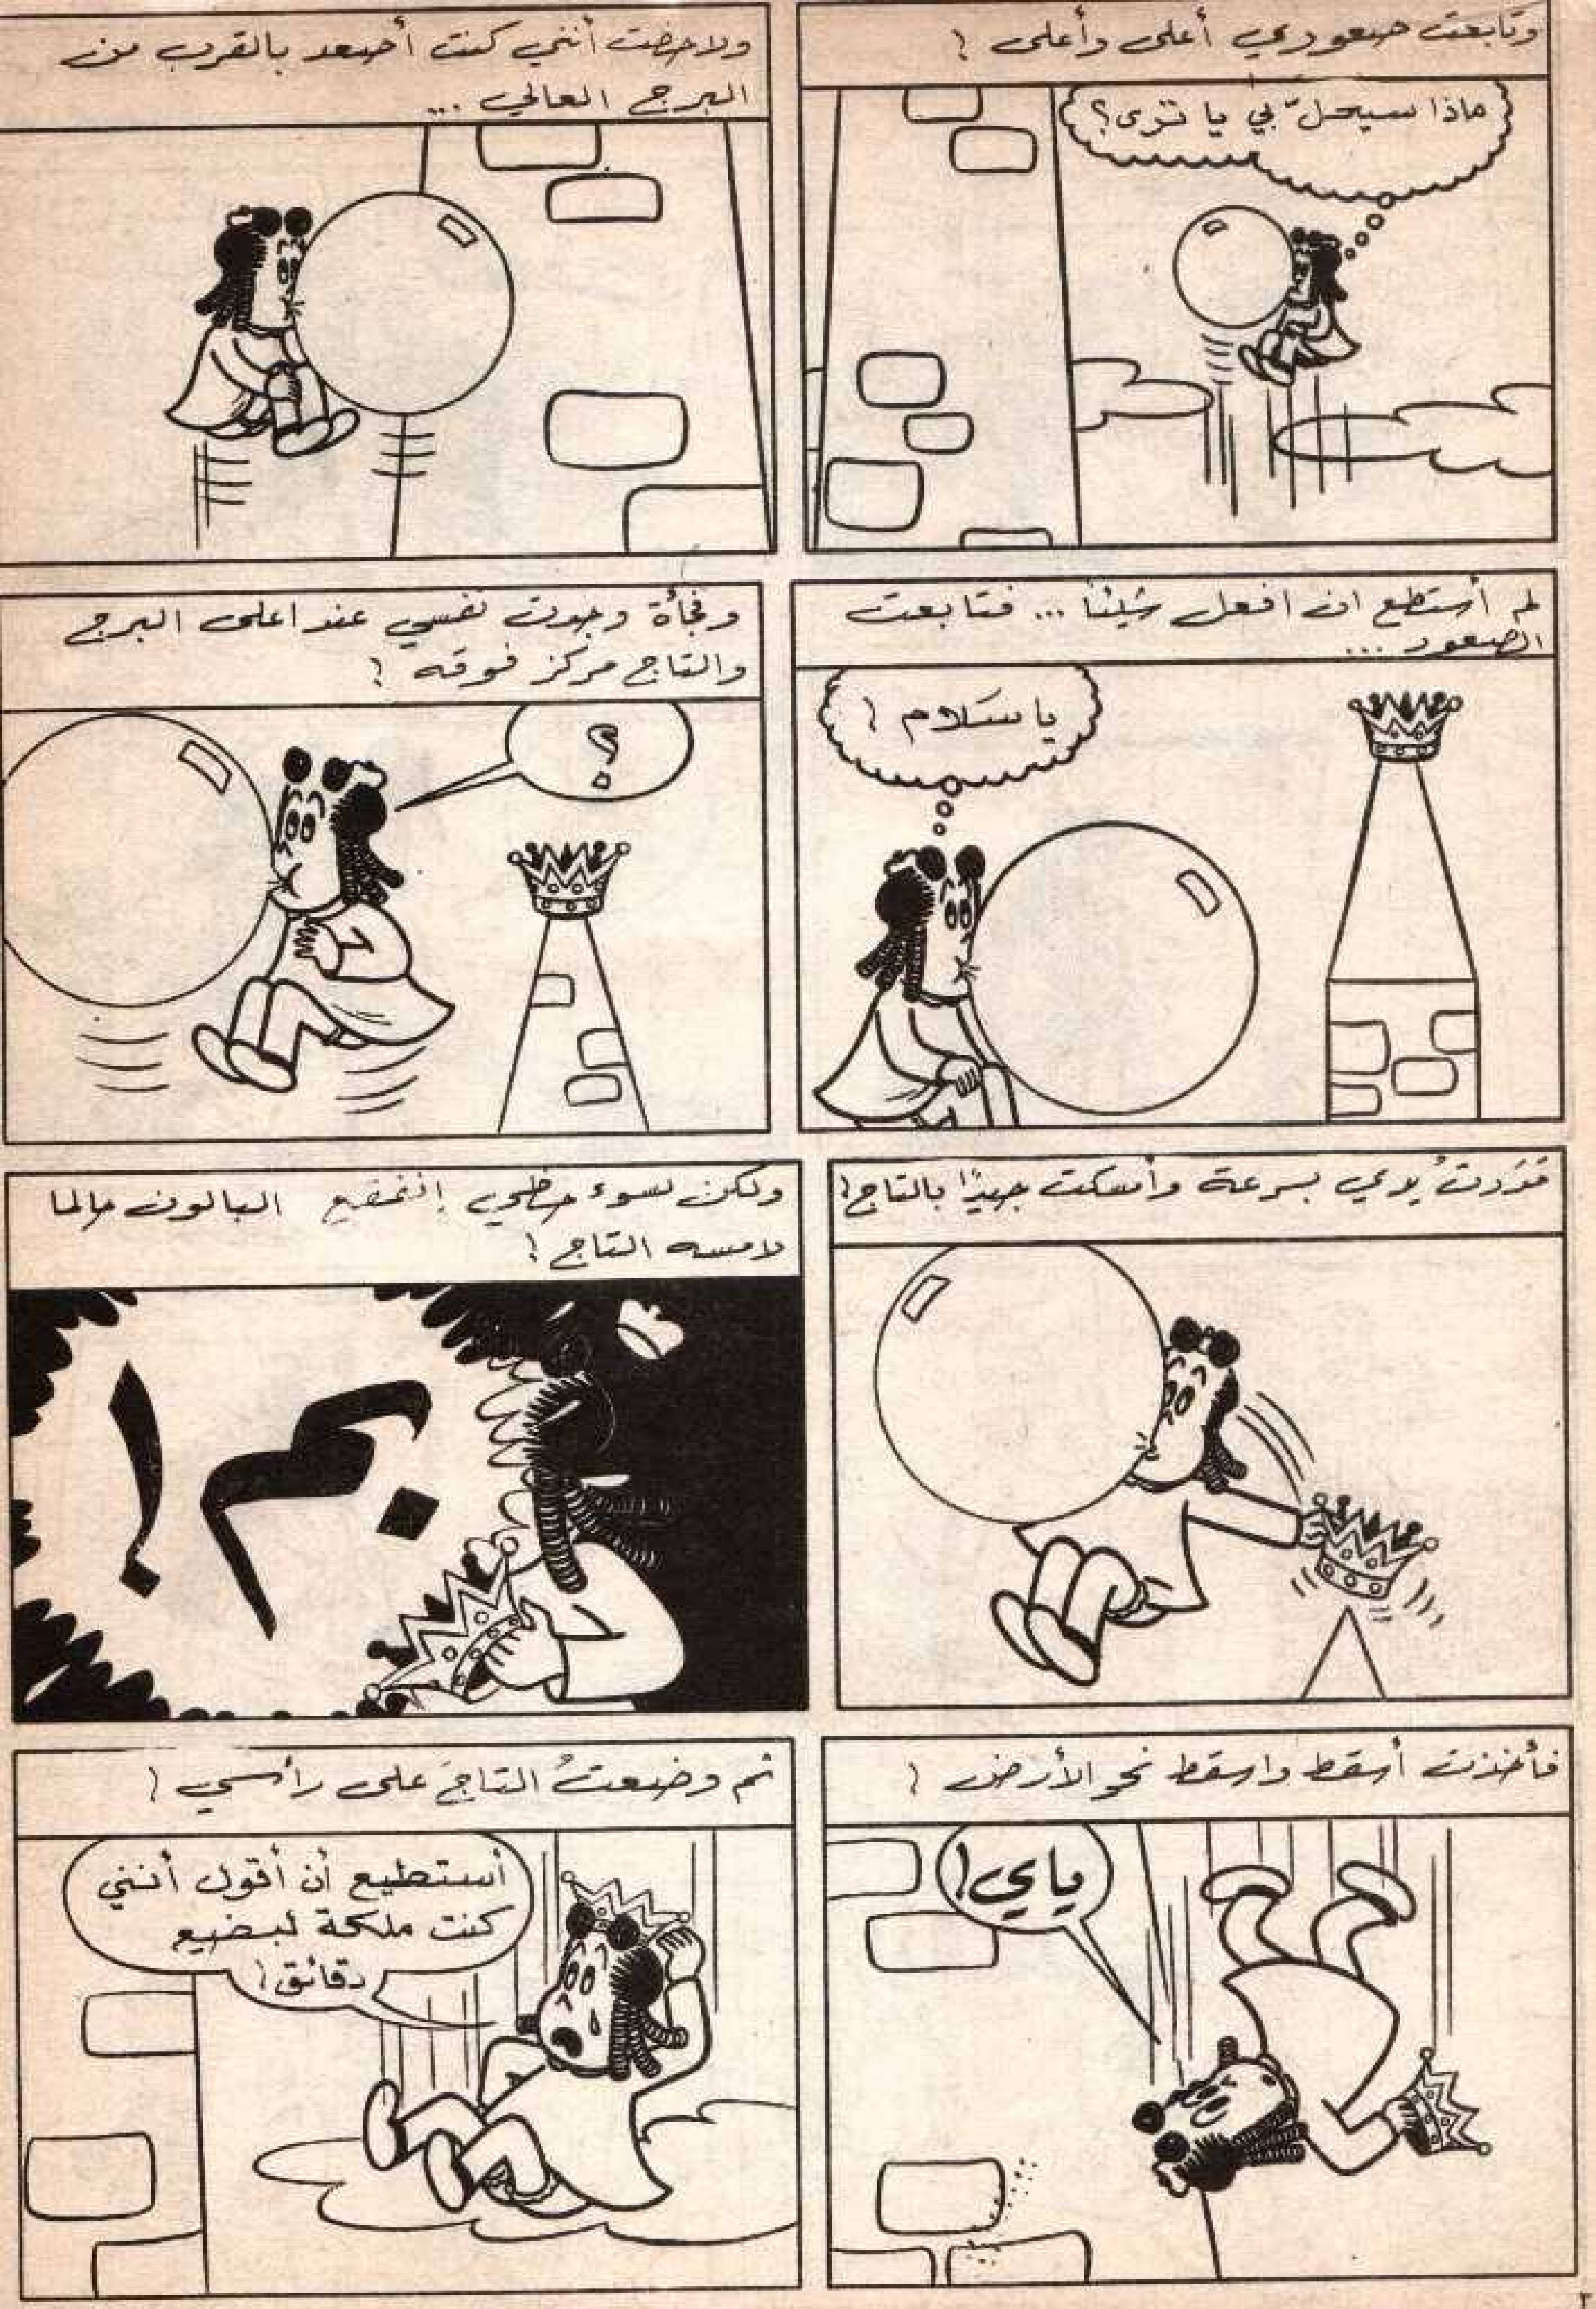 وتابعت صعودي أعلى وأعلى !
ماذا سيحلّ بي يا ترى؟
ولاحضت أنني كنت أصعد بالقرب من
البرج العالي ...
لم أستطع ان افعل شيئا ... فتابعت
الصعود ...
يا سَلام !
وفجأة وجدت نفسي عند اعلى البرج
والتاج مركز فوقه !
؟
فمَدَدتُ يدي بسرعة وأمسكت جيدًا بالتاج !
ولكن لسوء حظي إنفقع البالون حالما
لامسه التاج !
بم !
فأخذت أسقط واسقط نحو الأرض !
ياي !
ثم وضعتُ التاجَ على رأسي !
أستطيع أن أقول أنني
كنت ملكة لبضيع
دقائق !
٣